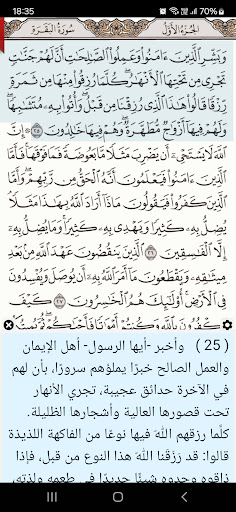 18:35 79%
الجزء الأول سورة البقرة
وَبَشِّرِ الَّذِينَ ءَامَنُوا وَعَمِلُوا الصَّالِحَاتِ أَنَّ لَهُمْ جَنَّاتٍ
تَجْرِي مِن تَحْتِهَا الْأَنْهَارُ كُلَّمَا رُزِقُوا مِنْهَا مِن ثَمَرَةٍ
رِّزْقًا قَالُوا هَٰذَا الَّذِي رُزِقْنَا مِن قَبْلُ وَأُتُوا بِهِ مُتَشَابِهًا
وَلَهُمْ فِيهَا أَزْوَاجٌ مُّطَهَّرَةٌ وَهُمْ فِيهَا خَالِدُونَ ٢٥ إِنَّ
اللَّهَ لَا يَسْتَحْيِي أَن يَضْرِبَ مَثَلًا مَّا بَعُوضَةً فَمَا فَوْقَهَا فَأَمَّا
الَّذِينَ ءَامَنُوا فَيَعْلَمُونَ أَنَّهُ الْحَقُّ مِن رَّبِّهِمْ وَأَمَّا
الَّذِينَ كَفَرُوا فَيَقُولُونَ مَاذَا أَرَادَ اللَّهُ بِهَٰذَا مَثَلًا
يُضِلُّ بِهِ كَثِيرًا وَيَهْدِي بِهِ كَثِيرًا وَمَا يُضِلُّ بِهِ
إِلَّا الْفَاسِقِينَ ٢٦ الَّذِينَ يَنقُضُونَ عَهْدَ اللَّهِ مِن بَعْدِ
مِيثَاقِهِ وَيَقْطَعُونَ مَا أَمَرَ اللَّهُ بِهِ أَن يُوصَلَ وَيُفْسِدُونَ
فِي الْأَرْضِ أُولَٰئِكَ هُمُ الْخَاسِرُونَ ٢٧ كَيْفَ
تَكْفُرُونَ بِاللَّهِ وَكُنتُمْ أَمْوَاتًا فَأَحْيَاكُمْ ثُمَّ يُمِيتُكُمْ
( 25 ) وأخبر -أيها الرسول- أهل الإيمان
والعمل الصالح خبرًا يملؤهم سرورًا، بأن لهم
في الآخرة حدائق عجيبة، تجري الأنهار
تحت قصورها العالية وأشجارها الظليلة.
كلَّما رزقهم الله فيها نوعًا من الفاكهة اللذيذة
قالوا: قد رزقَنا الله هذا النوع من قبل، فإذا
ذاقوه وجدوه شيئًا جديدًا في طعمه ولذته،